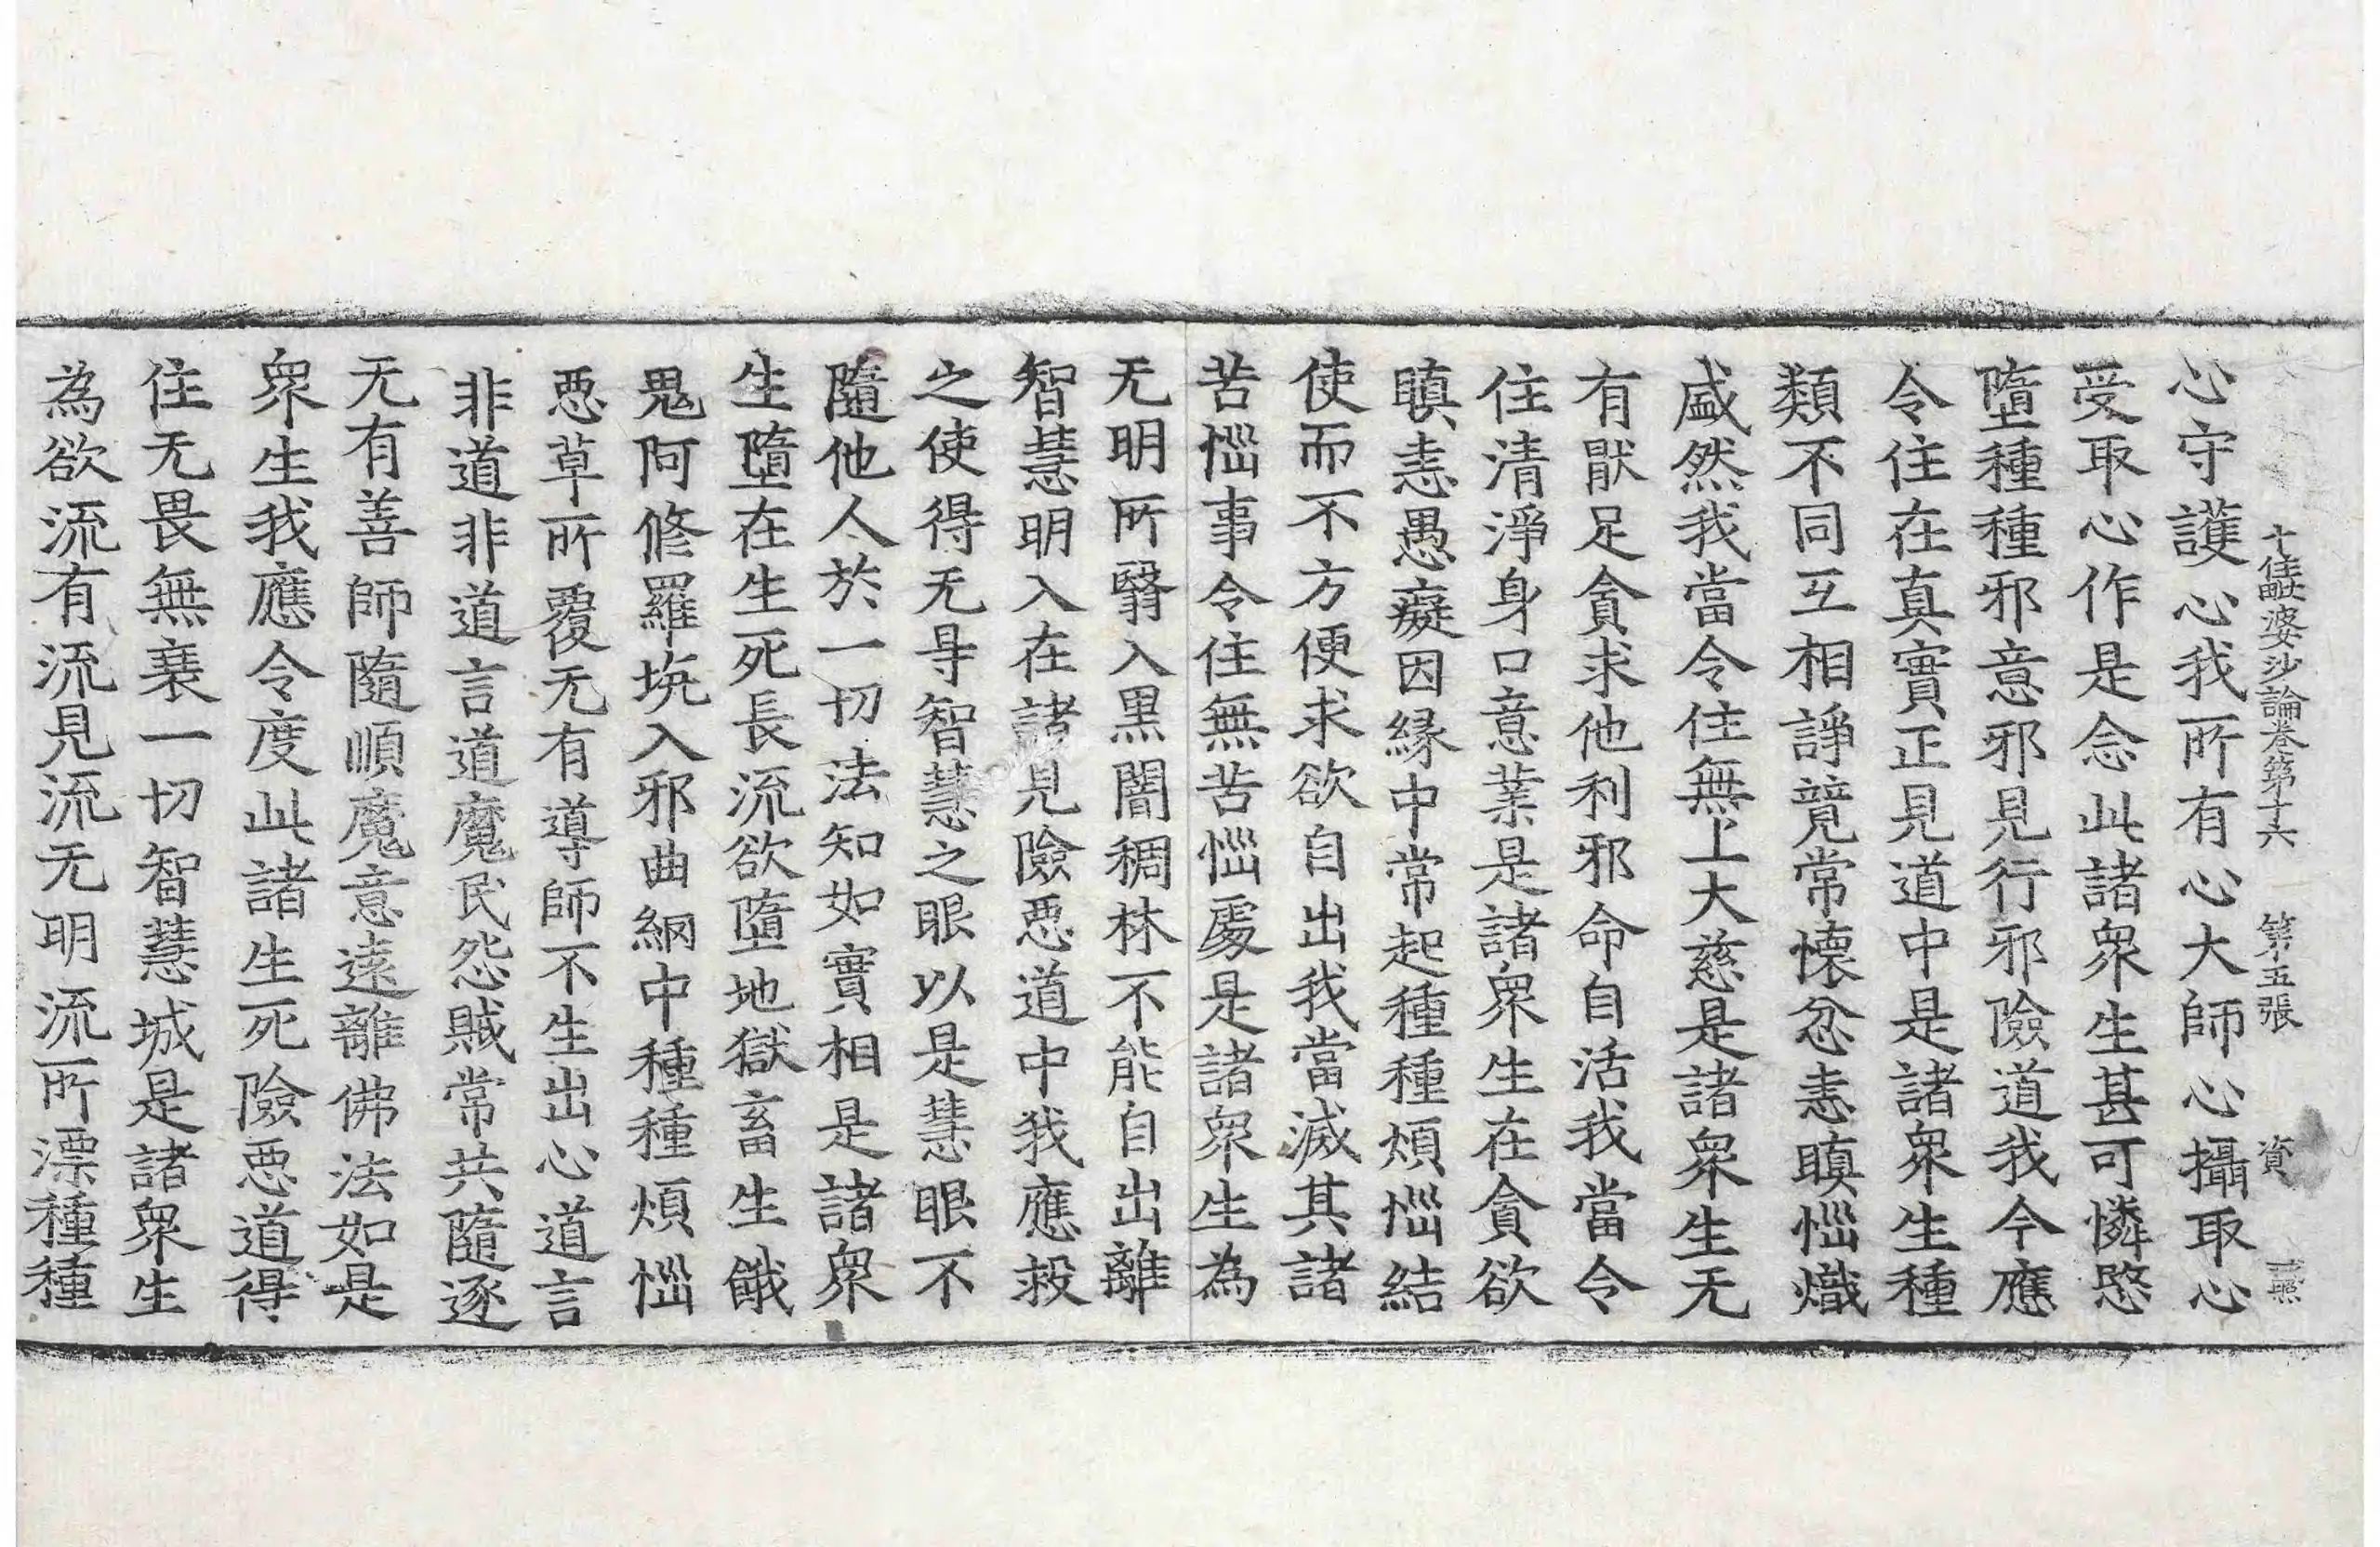 十住毗婆沙論卷第十六　第五張　資
心守護心我所有心大師心攝取心
受取心作是念此諸衆生甚可憐愍
墮種種邪意邪見行邪險道我今應
令住在真實正見道中是諸衆生種
類不同互相諍競常懷忿恚瞋惱熾
盛然我當令住無上大慈是諸衆生无
有猒足貪求他利邪命自活我當令
住清淨身口意業是諸衆生在貪欲
瞋恚愚癡因緣中常起種種煩惱結
使而不方便求欲自出我當滅其諸
苦惱事令住無苦惱處是諸衆生為
无明所翳入黒闇稠林不能自出離
智慧明入在諸見險惡道中我應救
之使得无㝵智慧之眼以是慧眼不
隨他人於一切法知如實相是諸衆
生墮在生死長流欲墮地獄畜生餓
鬼阿修羅坑入邪曲網中種種煩惱
惡草所覆无有導師不生出心道言
非道非道言道魔民怨賊常共隨逐
无有善師隨順魔意遠離佛法如是
衆生我應令度此諸生死險惡道得
住无畏無衰一切智慧城是諸衆生
為欲流有流見流无明流所漂種種